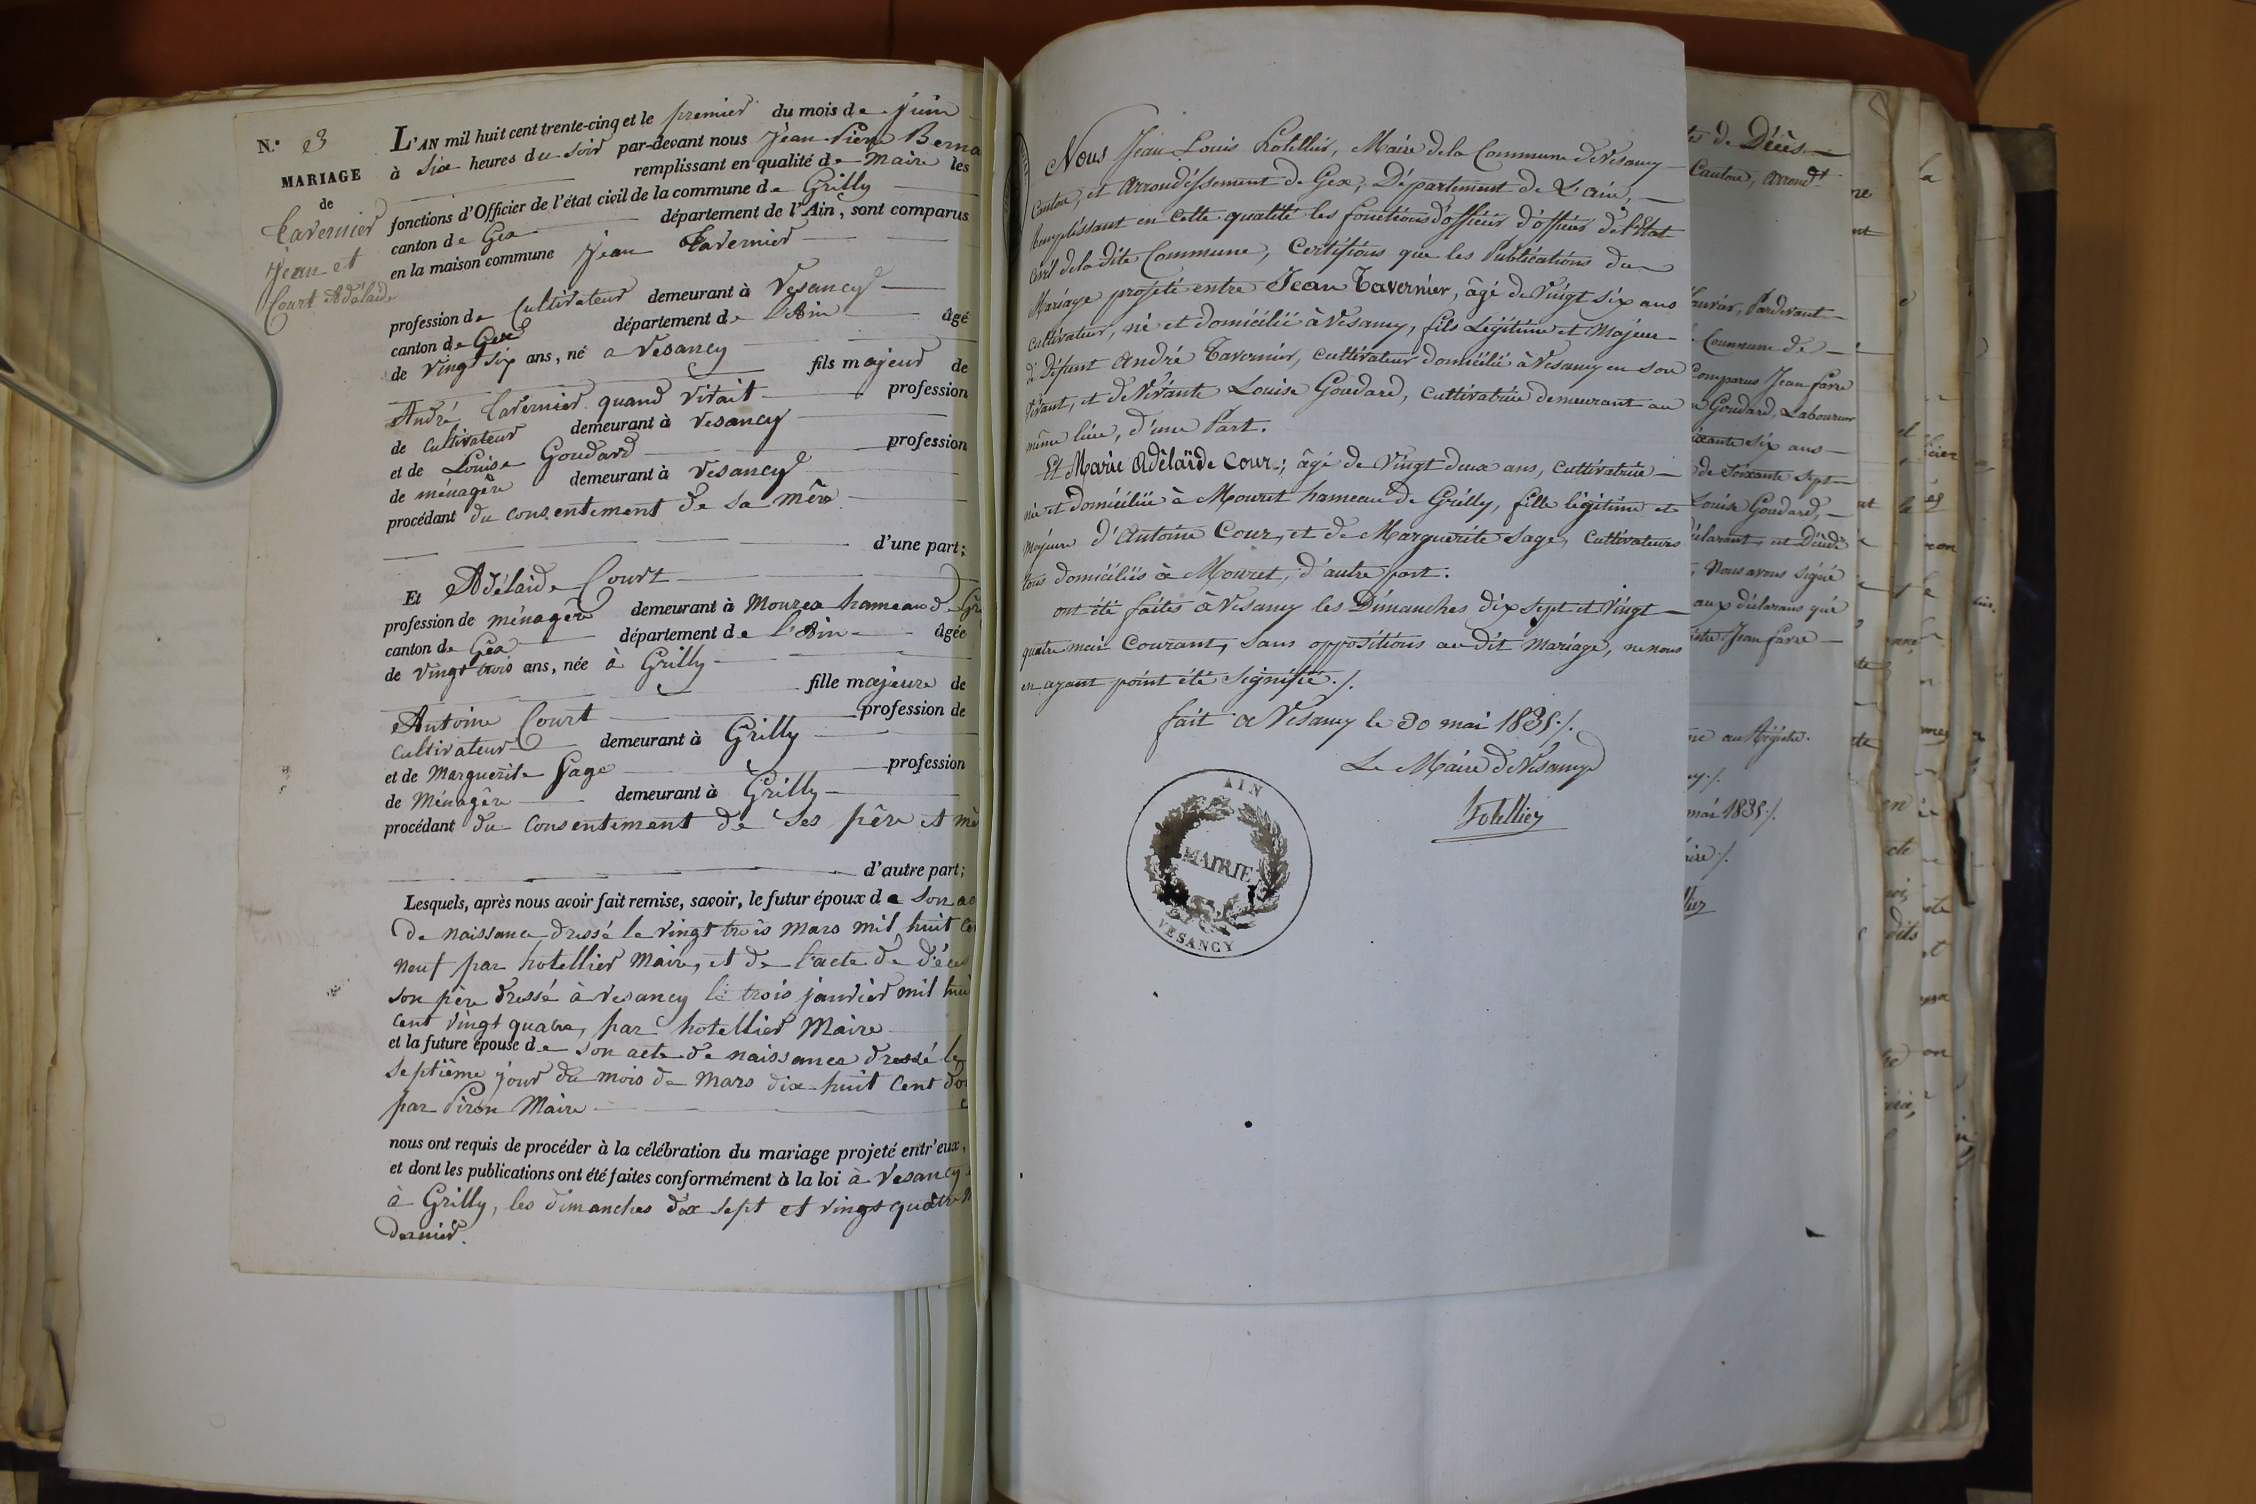 N.° 3
MARIAGE
de
Tavernier
Jean et
Court Adélaïde
L'AN mil huit cent trente-cinq et le premier du mois de juin
à Six heures du soir par-devant nous Jean Pierre Berna
remplissant en qualité de Maire les
fonctions d'Officier de l'état civil de la commune de Grilly
canton de Gex département de l'Ain, sont comparus
en la maison commune Jean Tavernier
profession de Cultivateur demeurant à Vesancy
canton de Gex département de l'Ain âgé
de vingt six ans, né a Vesancy
fils majeur de
André Tavernier quand vivait profession
de Cultivateur demeurant à Vesancy
et de Louise Goudard profession
de ménagère demeurant à Vesancy
procédant du consentement de sa mère
d'une part;
Et Adélaïde Court
profession de ménagère demeurant à Mourex hameau de Gri
canton de Gex département de l'Ain âgée
de vingt trois ans, née à Grilly
fille majeure de
Antoine Court profession de
Cultivateur demeurant à Grilly
et de Marguerite Sage profession
de Ménagère demeurant à Grilly
procédant du Consentement de ses père et mè
d'autre part;
Lesquels, après nous avoir fait remise, savoir, le futur époux de son ac
de naissance dressé le vingt trois mars mil huit ce
neuf par hotellier Maire, et de l'acte de décès
son père dressé à vesancy le trois janvier mil hui
cent vingt quatre, par hotellier Maire
et la future épouse de son acte de naissance dressé le
septième jour du mois de Mars dix-huit Cent do
par Piron Maire
nous ont requis de procéder à la célébration du mariage projeté entr'eux,
et dont les publications ont été faites conformément à la loi à Vesancy
à Grilly, les dimanches dix sept et vingt quatre
dernier.
Nous Jean Louis hotellier, Maire de la Commune de Vesancy
Canton, et arrondissement de Gex, Département de L'ain,
Remplissant en cette qualité les fonctions d'officier d'officier de l'Etat
Civil de la dite Commune, Certifions que les Publications du
Mariage projeté entre Jean Tavernier, âgé de Vingt Six ans
Cultivateur, né et domicilié à Vesancy, fils Légitime et Majeur
de Défunt André Tavernier, cultivateur domicilié à Vesancy en son
vivant, et de Vivante Louise Goudard, cultivatrice demeurant au
même lieu, d'une Part.
Et Marie Adélaïde Cour; âgé de Vingt deux ans, cultivatrice
née et domiciliée à Mouret hameau de Grilly, fille légitime et
Majeure d'Antoine Cour, et de Marguerite Sage, Cultivateurs
tous domiciliés à Mouret, d'autre part.
ont été faites à Vesancy les Dimanches dix sept et Vingt
quatre mai Courant, sans oppositions au dit Mariage, ne nous
en ayant point été Signifié ./.
fait a Vesancy le 30 mai 1835 ./.
Le Maire de Vesancy
hotellier
AIN
MAIRIE
VESANCY
de Décès
Canton, arrond.t
Janvier, Pardevant
Commune de
Comparus Jean favre
Goudard, Laboureur
Six ans
de Soixante Sept
Louise Goudard,
Nous avons signé
aux déclarans que
Jean favre
au Régistre.
mai 1835 ./.